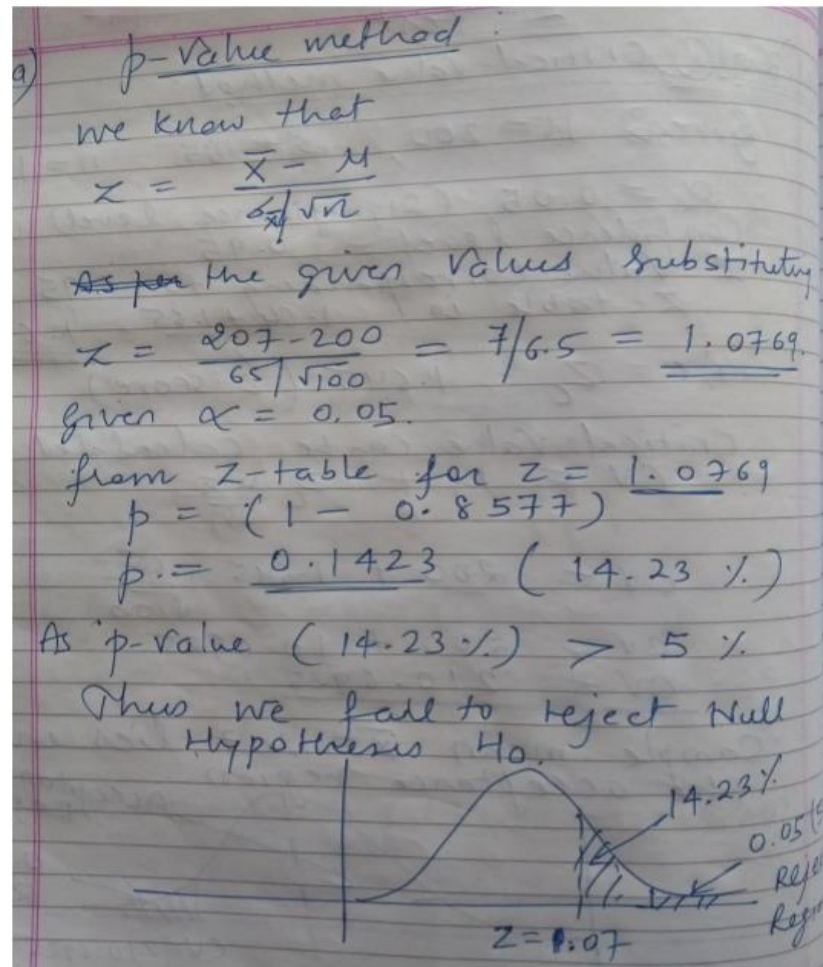 a) p-value method :
we know that
z = x̄ - μ / σx̄/√n
As per the given values substituting
z = 207-200 / 65/√100 = 7/6.5 = 1.0769.
given α = 0.05.
from z-table for z = 1.0769
p = (1 - 0.8577)
p. = 0.1423 (14.23 %)
As p-value (14.23%) > 5 %
Thus we fail to reject Null
Hypothesis H0.
14.23%
0.05
Z=1.07